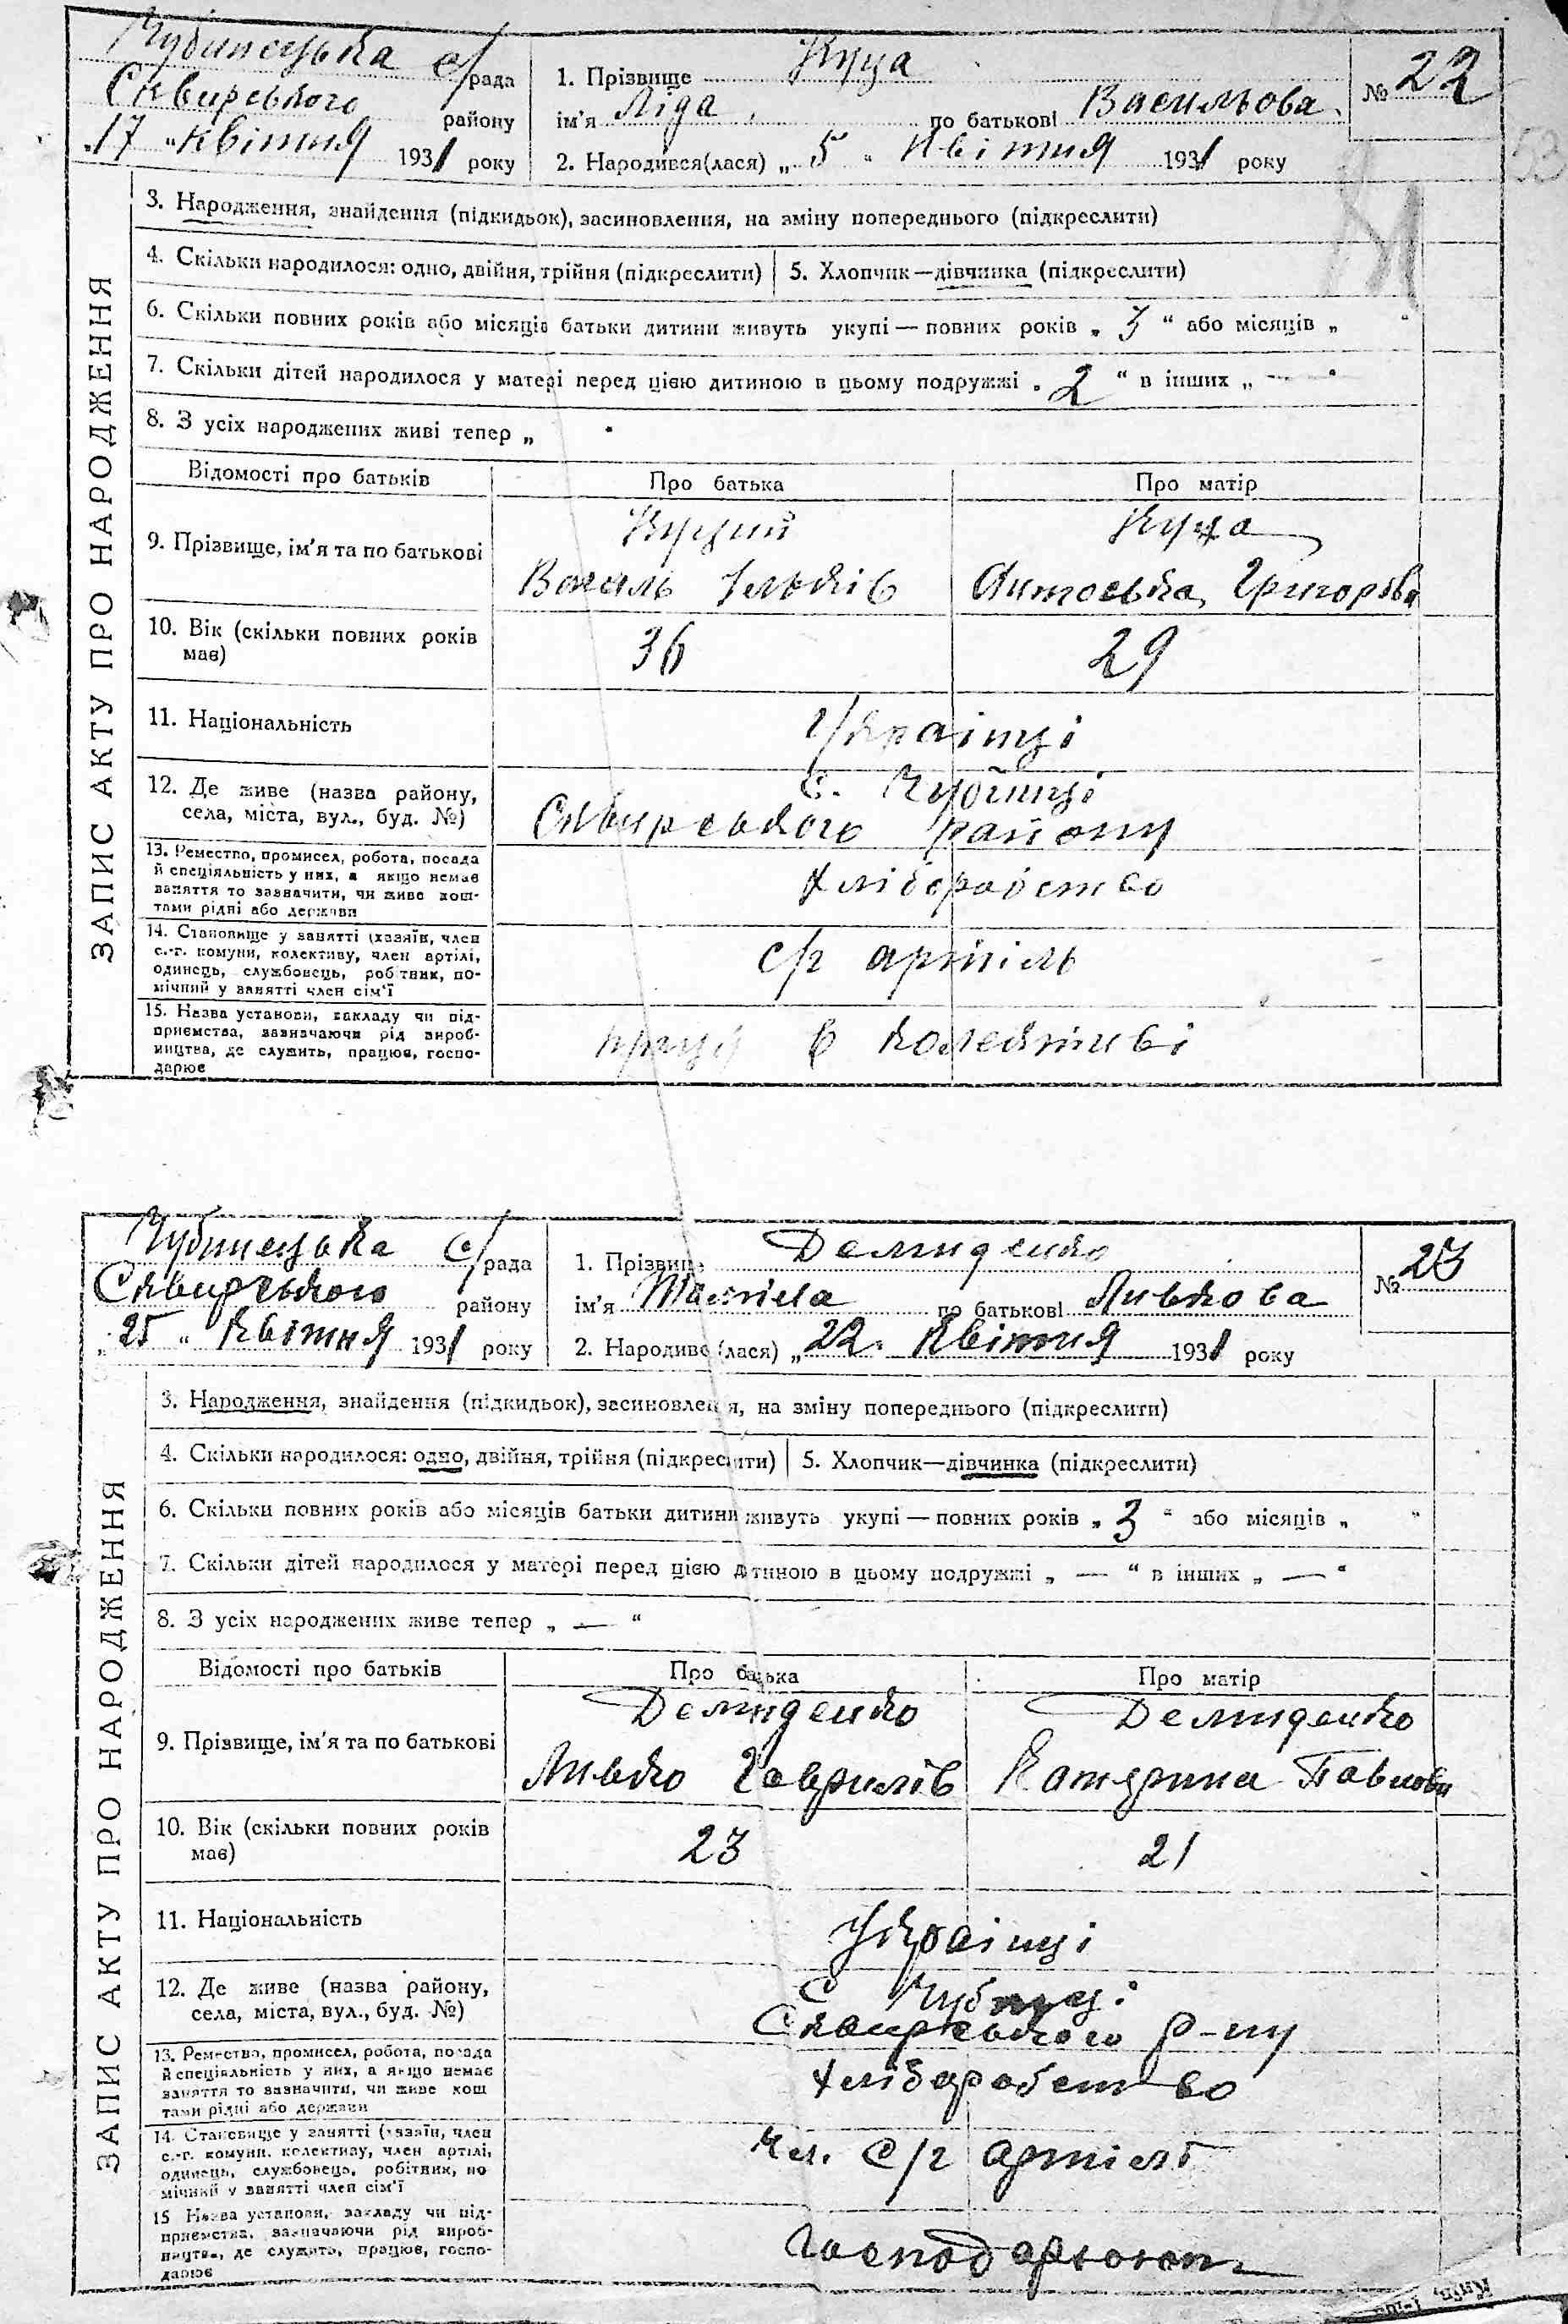 Чубинецька с/рада
Сквирського району
„17“ квітня 1931 року
1. Прізвище Куца
ім'я Ліда по батькові Васильова
2. Народився(лася) „5“ квітня 1931 року
№ 22
ЗАПИС АКТУ ПРО НАРОДЖЕННЯ
3. Народження, знайдення (підкидьок), засиновлення, на зміну попереднього (підкреслити)
4. Скільки народилося: одно, двійня, трійня (підкреслити) 5. Хлопчик—дівчинка (підкреслити)
6. Скільки повних років або місяців батьки дитини живуть укупі — повних років „3“ або місяців „ “
7. Скільки дітей народилося у матері перед цією дитиною в цьому подружжі „2“ в інших „—“
8. З усіх народжених живі тепер „ “
Відомості про батьків Про батька Про матір
9. Прізвище, ім'я та по батькові
Куций Куца
Василь Ільків Антоська Григорова
10. Вік (скільки повних років
має)
36 29
11. Національність Українці
12. Де живе (назва району,
села, міста, вул., буд. №)
с. Чубинці
Сквирського району
13. Ремество, промисел, робота, посада
й спеціяльність у них, а якщо немає
заняття то зазначити, чи живе кош-
тами рідні або держави
хліборобство
14. Становище у занятті (хазяїн, член
с.-г. комуни, колективу, член артілі,
одинець, службовець, робітник, по-
мічний у занятті член сім'ї
с/г артіль
15. Назва установи, закладу чи під-
приємства, зазначаючи рід вироб-
ництва, де служить, працює, госпо-
дарює
в колективі
Чубинецька с/рада
Сквирського району
„25“ квітня 1931 року
1. Прізвище Демиденко
ім'я по батькові Ливкова
2. Народивс (лася) „22. квітня 1931 року
№ 23
ЗАПИС АКТУ ПРО НАРОДЖЕННЯ
3. Народження, знайдення (підкидьок), засиновлення, на зміну попереднього (підкреслити)
4. Скільки народилося: одно, двійня, трійня (підкреслити) 5. Хлопчик—дівчинка (підкреслити)
6. Скільки повних років або місяців батьки дитини живуть укупі — повних років „3“ або місяців „ “
7. Скільки дітей народилося у матері перед цією дитиною в цьому подружжі „—“ в інших „—“
8. З усіх народжених живе тепер „—“
Відомості про батьків Про батька Про матір
9. Прізвище, ім'я та по батькові
Демиденко Демиденко
Ливко Гаврилів Катерина Павлова
10. Вік (скільки повних років
має)
23 21
11. Національність Українці
12. Де живе (назва району,
села, міста, вул., буд. №)
с Чубинці
Сквирського р-ну
13. Ремество, промисел, робота, посада
й спеціяльність у них, а якщо немає
заняття то зазначити, чи живе кош
тами рідні або держави
хліборобство
14. Становище у занятті (хазяїн, член
с.-г. комуни, колективу, член артілі,
одинець, службовець, робітник, по
мічний у занятті член сім'ї
чл. с/г артілі
15 Назва установи, закладу чи під-
приємства, зазначаючи рід вироб-
ництва, де служить, працює, госпо-
дарює
Господарюють